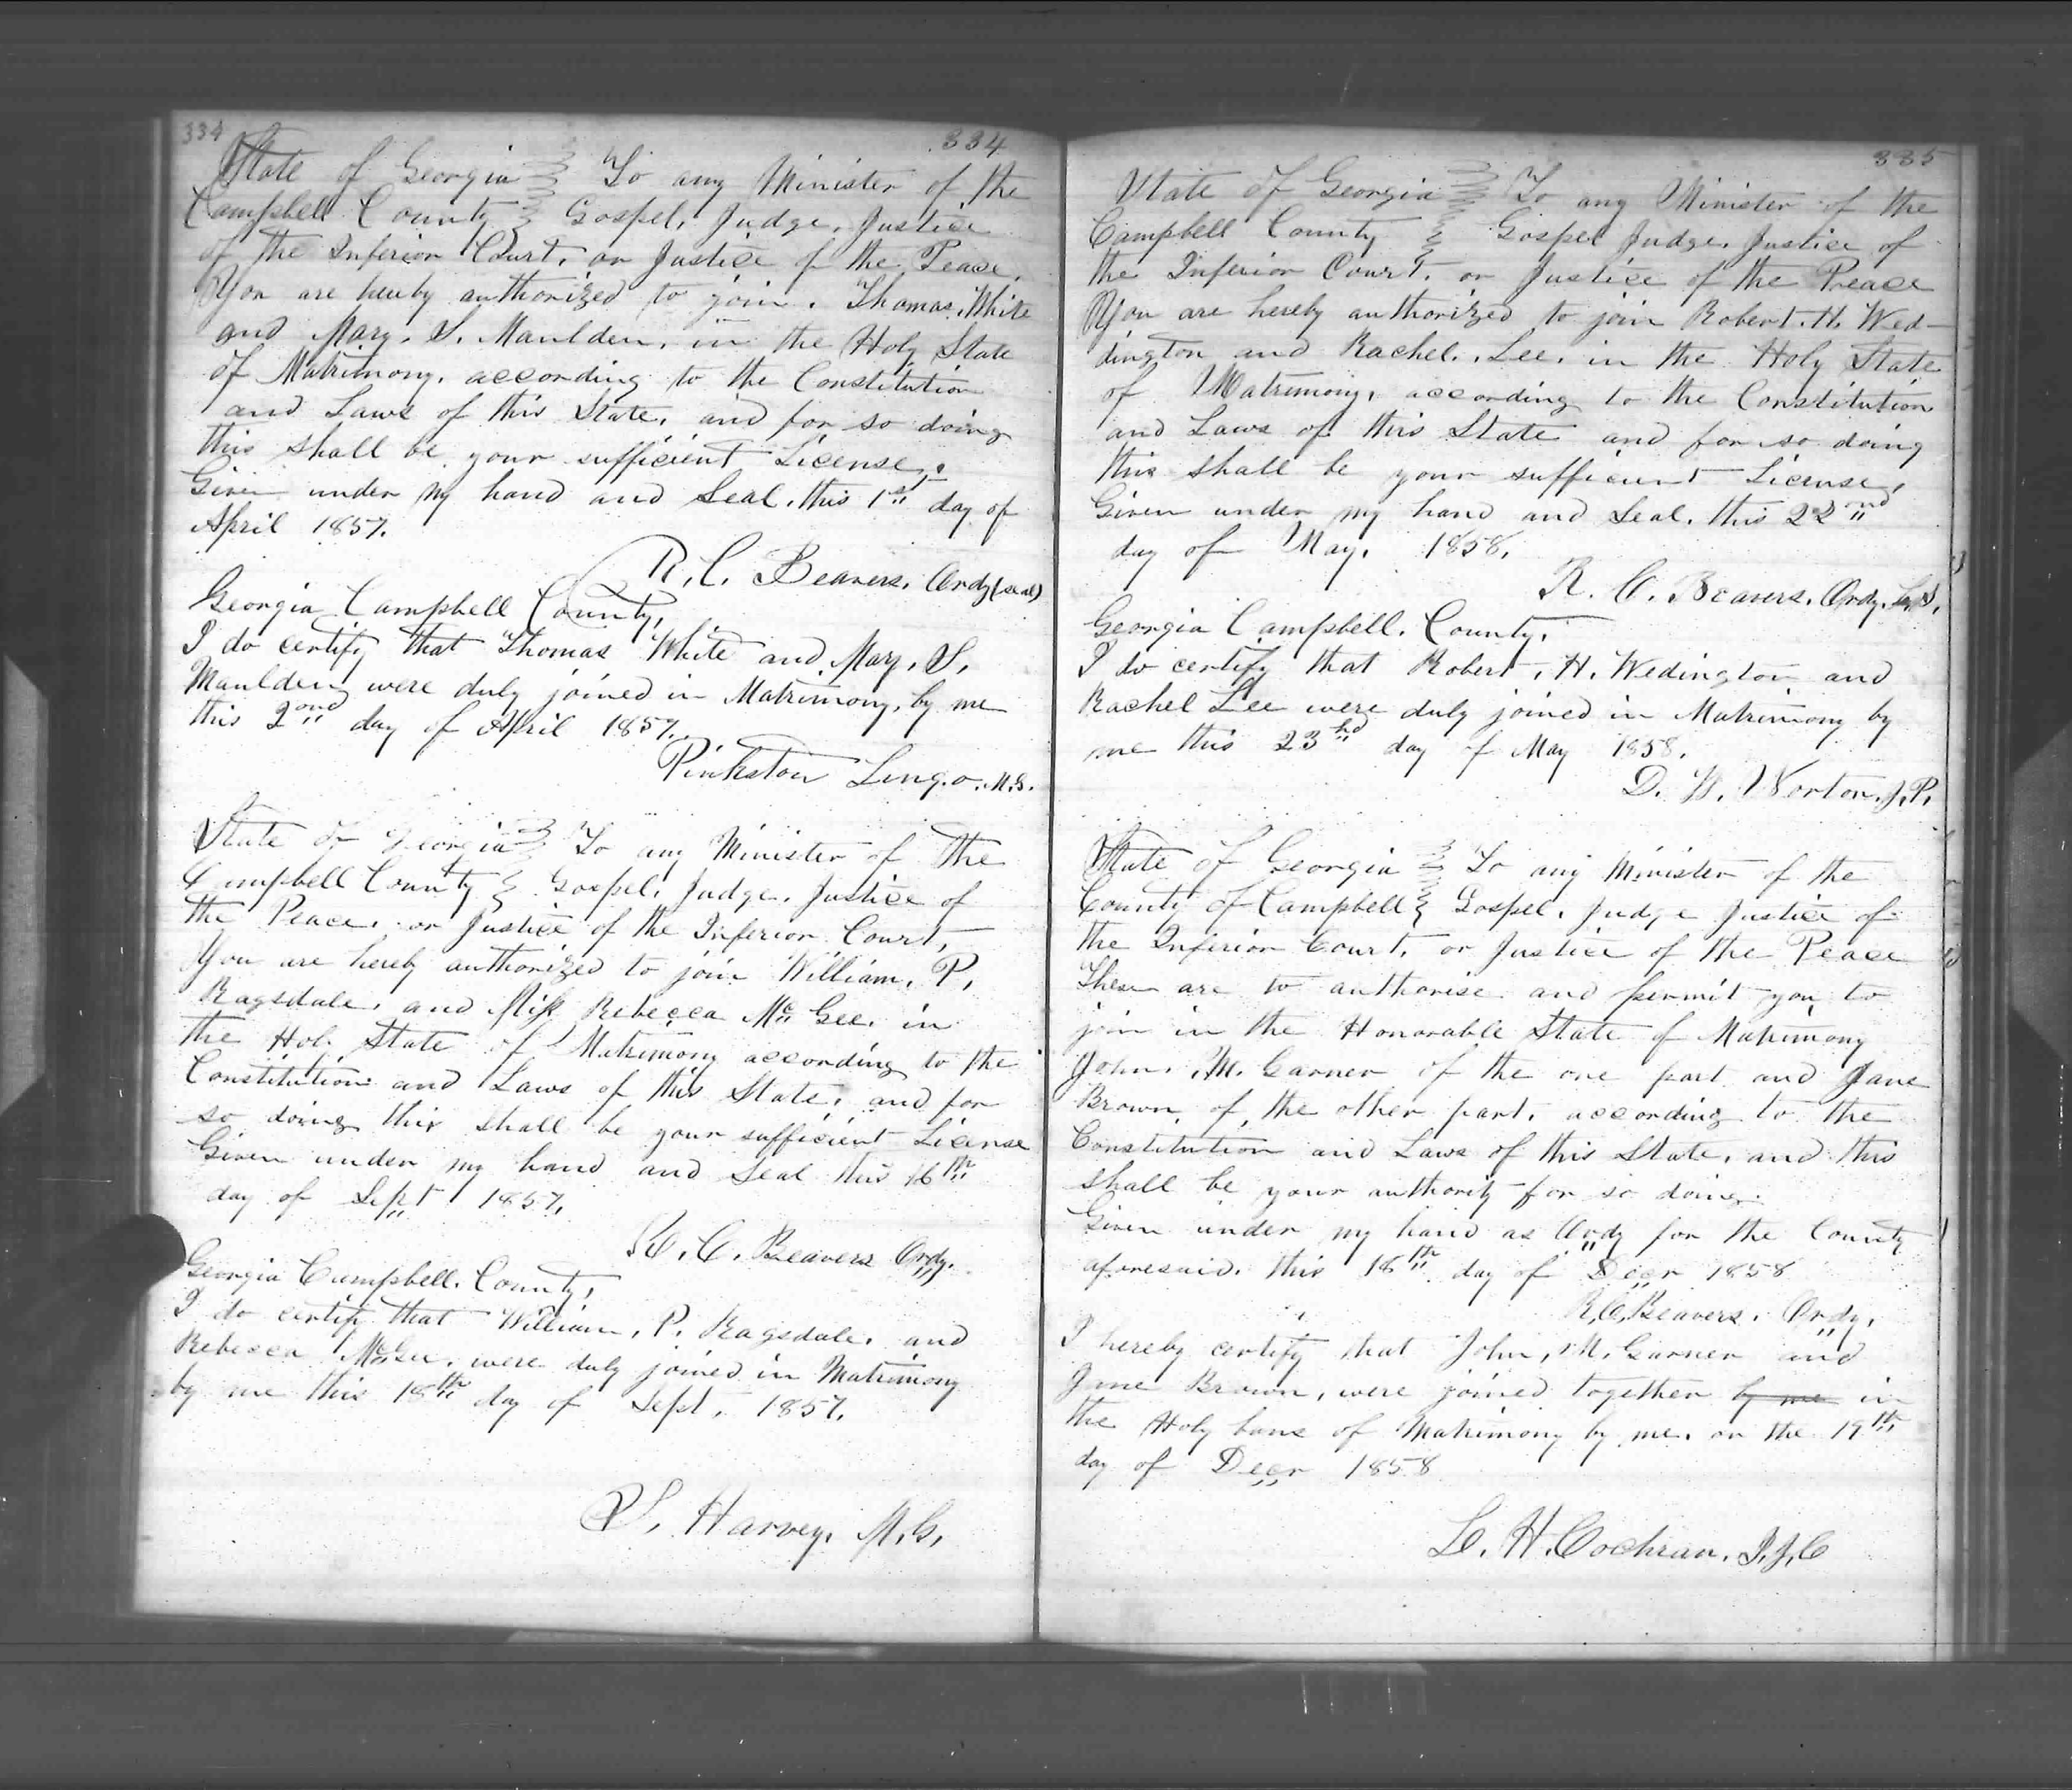 334 334
State of Georgia } To any Minister of the
Campbell County } Gospel, Judge, Justice
of the Inferior Court, or Justice of the Peace,
You are hereby authorized to join, Thomas White
and Mary, S. Maulden, in the Holy State
of Matrimony, according to the Constitution
and Laws of this State, and for so doing
this shall be your sufficient License,
Given under my hand and Seal, this 1st day of
April 1857.
R. C. Beavers, Ordy (seal)
Georgia Campbell County,
I do certify that Thomas White and Mary, S.
Maulden were duly joined in Matrimony, by me
this 2ond day of April 1857.
Pinkston Lingo. M.G.
State of Georgia } To any Minister of the
Campbell County } Gospel, Judge, Justice of
the Peace, or Justice of the Inferior Court,
You are hereby authorized to join William, P,
Ragsdale, and Miss Rebecca McGee, in
the Hol. State of Matrimony according to the
Constitution and Laws of this State, and for
so doing this shall be your sufficient License
Given under my hand and Seal this 16th
day of Sept 1857,
R. C. Beavers Ordy.
Georgia Campbell. County,
I do certify that William, P. Ragsdale, and
Rebecca McGee, were duly joined in Matrimony
by me this 18th day of Sept, 1857,
S. Harvey, M.G.
335
State of Georgia } To any Minister of the
Campbell County } Gospel Judge, Justice of
the Inferior Court, or Justice of the Peace
You are hereby authorized to join Robert. H. Wed-
dington and Rachel. Lee, in the Holy State
of Matrimony, according to the Constitution
and Laws of this State and for so doing
this shall be your sufficient License,
Given under my hand and Seal, this 22ond
day of May, 1858,
R. C. Beavers, Ordy. L.S.
Georgia Campbell. County,
I do certify that Robert, H. Wedington and
Rachel Lee were duly joined in Matrimony by
me this 23rd day of May 1858.
D. W. Norton, J.P.
State of Georgia } To any Minister of the
County of Campbell } Gospel, Judge Justice of
the Inferior Court, or Justice of the Peace
These are to authorise and permit you to
join in the Honorable State of Matrimony
John, M. Garner of the one part and Jane
Brown of the other part, according to the
Constitution and Laws of this State, and this
shall be your authority for so doing.
Given under my hand as Ordy for the County
aforesaid, this 18th day of Decr 1858
R.C. Beavers, Ordy,
I hereby certify that John, M. Garner and
Jane Brown, were joined together by me in
the Holy bans of Matrimony by me, on the 19th
day of Decr 1858
L. H. Cochran, J.I.C